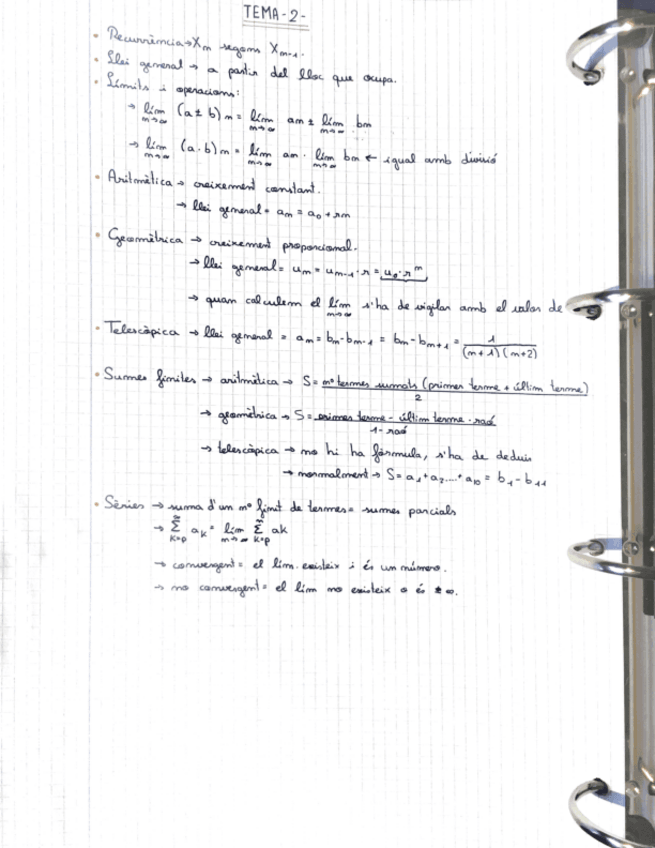 TEMA-2-
• Recurrència → Xm segons Xm-1.
• Llei general → a partir del lloc que ocupa.
• Límits i operacions:
→ lím m→∞ (a ± b)m = lím m→∞ am ± lím m→∞ bm
→ lím m→∞ (a·b)m = lím m→∞ am · lím m→∞ bm ← igual amb divisió
• Aritmètica → creixement constant.
→ llei general = am = a0 + rm
• Geomètrica → creixement proporcional.
→ llei general = um = um-1 · r = u0 · r^m
→ quan calculem el lím m→∞ s'ha de vigilar amb el valor de
• Telescòpica → llei general = am = bm - bm-1 = bm - bm+1 = 1/(m+1)(m+2)
• Sumes finites → aritmètica → S = mº termes sumats (primer terme + últim terme)/2
→ geomètrica → S = primer terme - últim terme · raó/1 - raó
→ telescòpica → no hi ha fórmula, s'ha de deduir
→ normalment → S = a1 + a2 .... + a10 = b1 - b11
• Sèries → suma d'un mº finit de termes = sumes parcials
→ ∞ Σ K=p ak = lím m→∞ Σ K=p ak
→ convergent = el lím. existeix i és un número.
→ no convergent = el lím no existeix o és ±∞.